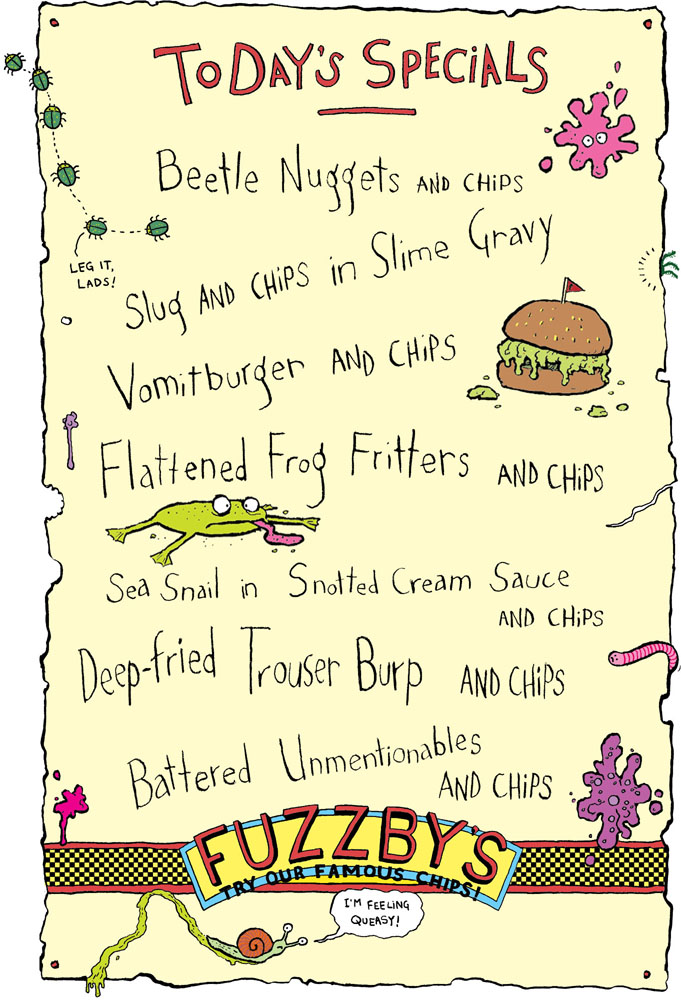 TODAY'S SPECIALS
Beetle Nuggets AND CHIPS
LEG IT,
LADS!
Slug AND CHIPS in Slime Gravy
Vomitburger AND CHIPS
Flattened Frog Fritters AND CHIPS
Sea Snail in Snotted Cream Sauce
AND CHIPS
Deep-fried Trouser Burp AND CHIPS
Battered Unmentionables
AND CHIPS
FUZZBY'S
TRY OUR FAMOUS CHIPS!
I'M FEELING
QUEASY!